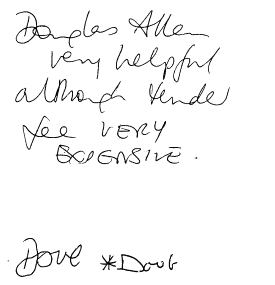 Douglas Allen
very helpful
although tender
fee VERY
EXPENSIVE.
Dove *Doug